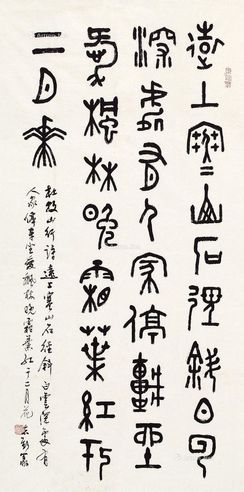 遠上寒山石徑斜白云
深處有人家停車坐
愛楓林晚霜葉紅于
二月花
杜牧山行詩遠上寒山石徑斜白雲深處有
人家停車坐愛楓林晚霜葉紅于二月花